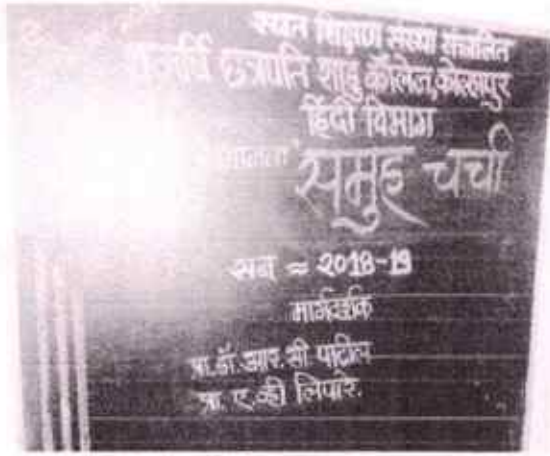 रयत शिक्षण संस्था संचलित
राजर्षि छत्रपति शाहु कॉलेज, कोल्हापुर
हिंदी विभाग
समुह चर्चा
सन = 2018-19
मार्गदर्शक
प्रा. डॉ. आर. सी पाटील
प्रा. ए. व्ही लिपारे.